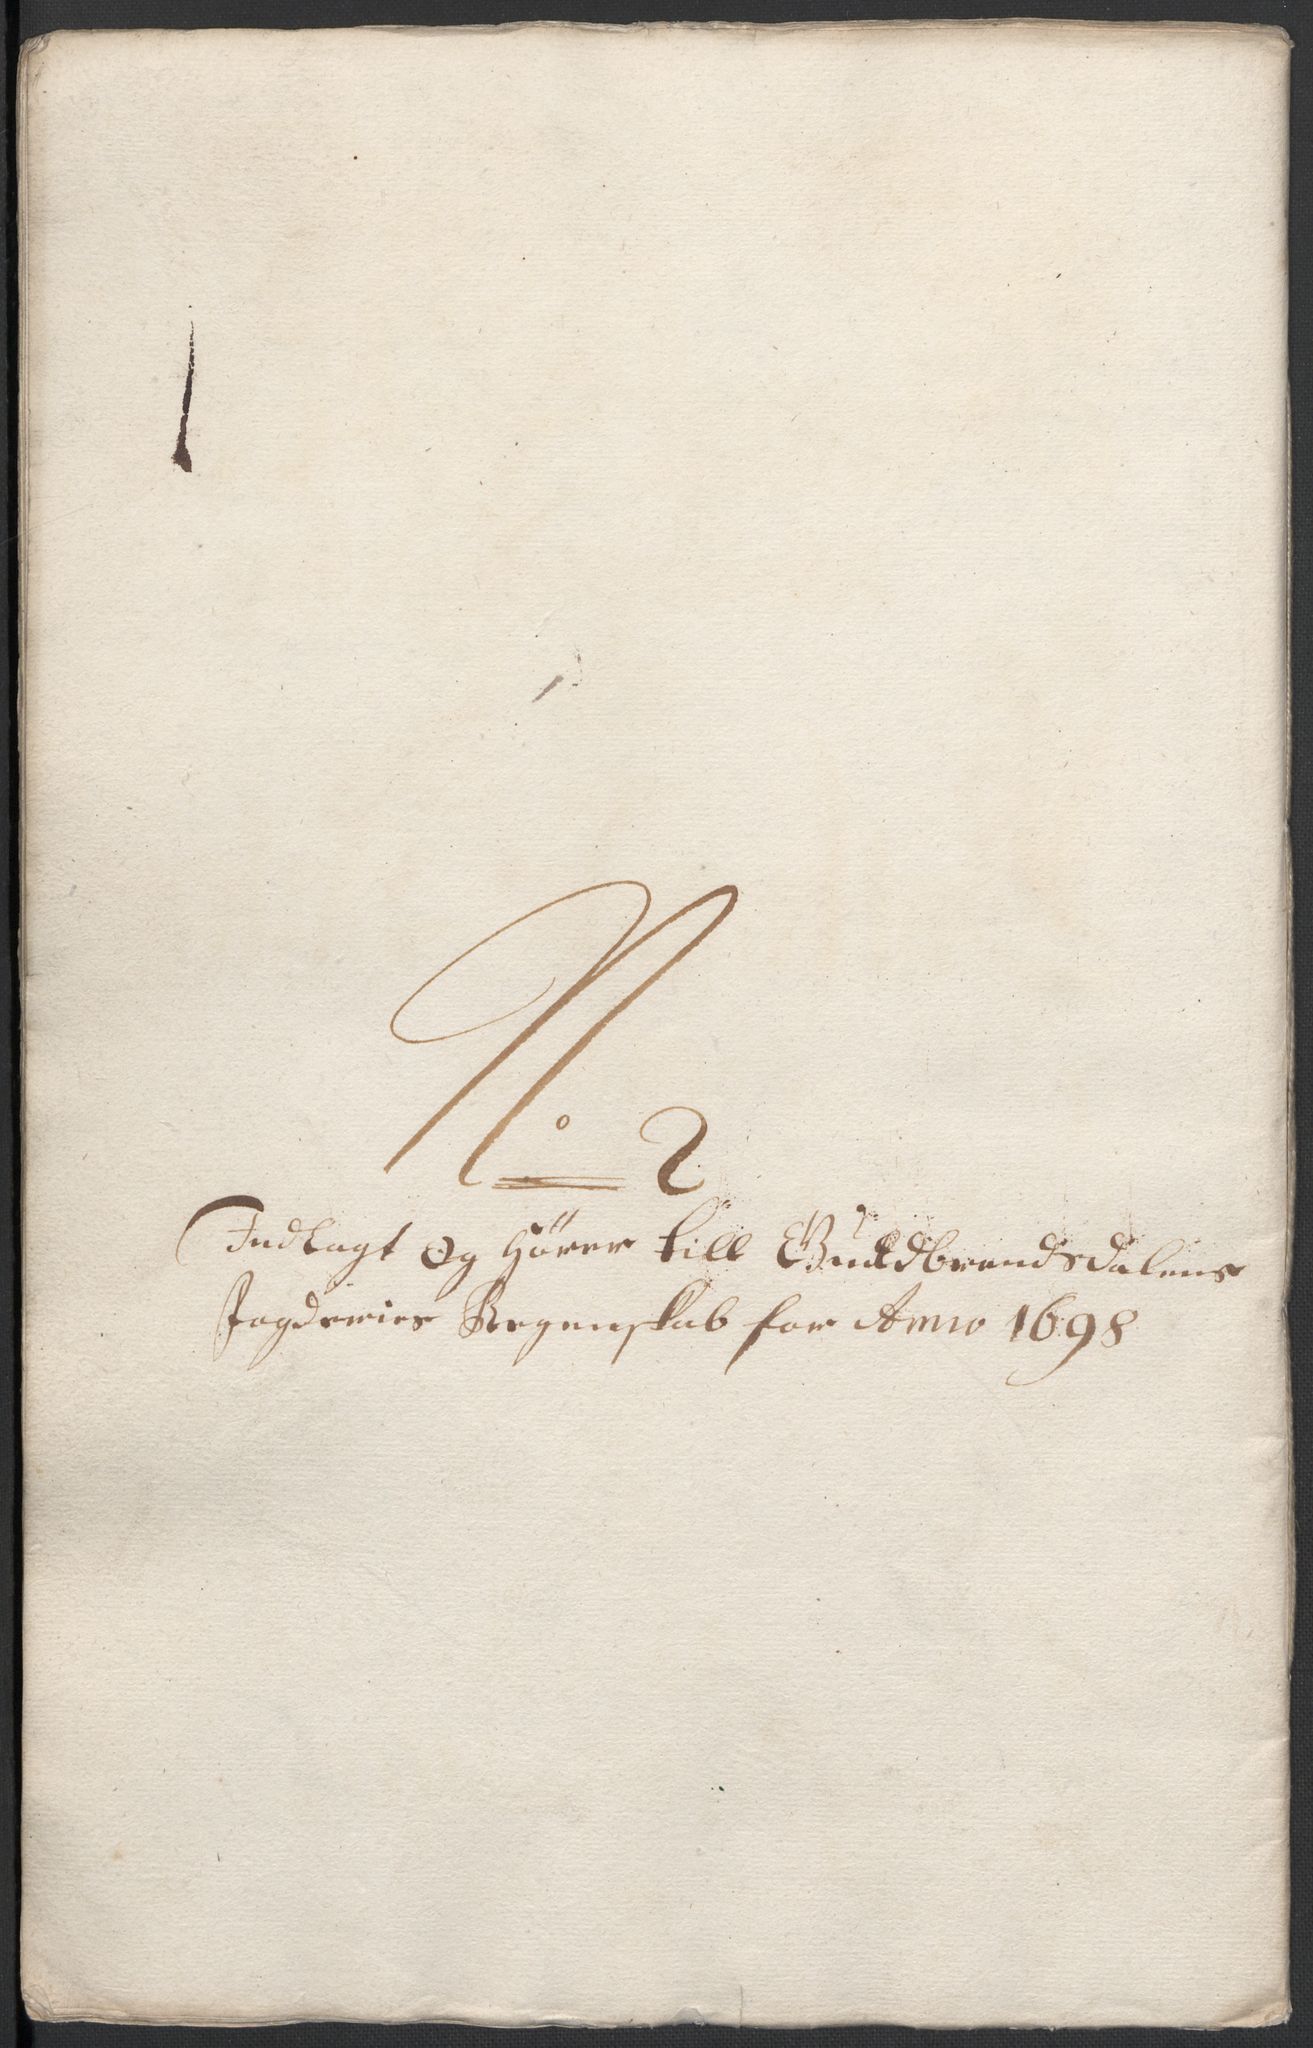 No 2
Indlagt og hörer till Guldbrandsdalens
Fogderies Regenskab for Anno 1698